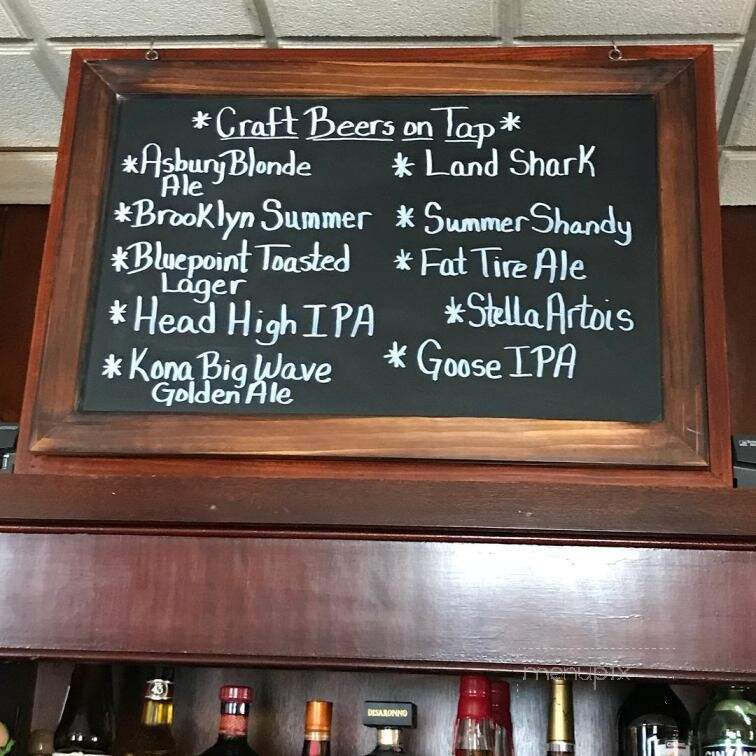 * Craft Beers on Tap *
* Asbury Blonde
Ale
* Brooklyn Summer
* Bluepoint Toasted
Lager
* Head High IPA
* Kona Big Wave
Golden Ale
* Land Shark
* Summer Shandy
* Fat Tire Ale
* Stella Artois
* Goose IPA
43
DISARONNO
menupix